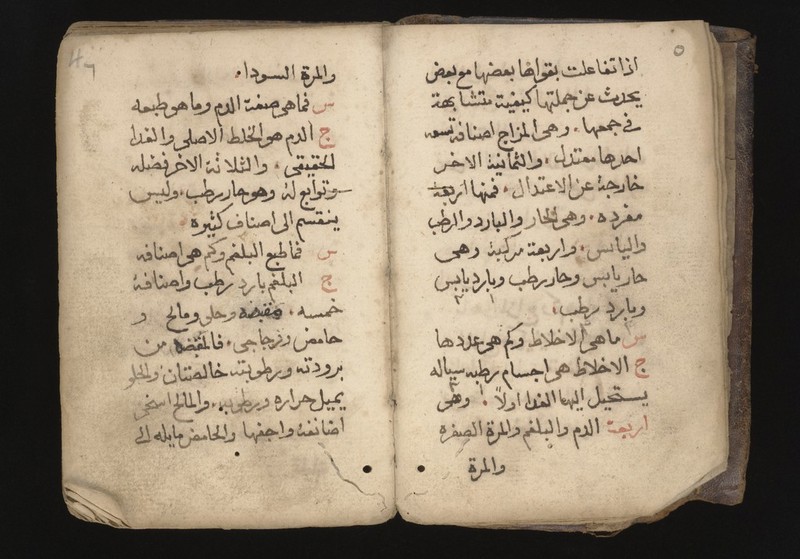 اذا تفاعلت بقواها بعضها مع بعض
يحدث عن جملتها كيفية متشابهة
في جمعها. وهي المزاج اصنافة تسعه
احدها معتدل. والثمانية الاخر
خارجة عن الاعتدال. فمنها اربعة
مفرده. وهي الحار والبارد والرطب
واليابس. واربعة مركبة وهي
حار يابس وحار رطب وبارد يابس
وبارد رطب.
س ماهي الاخلاط وكم هي عددها
ج الاخلاط هي اجسام رطبه سياله
يستحيل اليها الغدا اولاً. وهي
اربعة الدم والبلغم والمرة الصفره
والمرة
والمرة السودا.
س فما هي صفة الدم وما هو طبعه
ج الدم هو الخلط الاصلي والغدا
الحقيقي. والثلاثة الاخر فضله
وتوابع لة وهو حار رطب. وليس
ينقسم الى اصناف كثيرة.
س فما طبع البلغم وكم هي اصنافه
ج البلغم بارد رطب واصنافة
خمسه. وحلو ومالح و
حامض وزجاجي. من
برودته ورطوبته خالصتان والحلو
يميل حراره ورطوبه. والمالح اسخن
اصنافة واجفها والحامض مايله الى